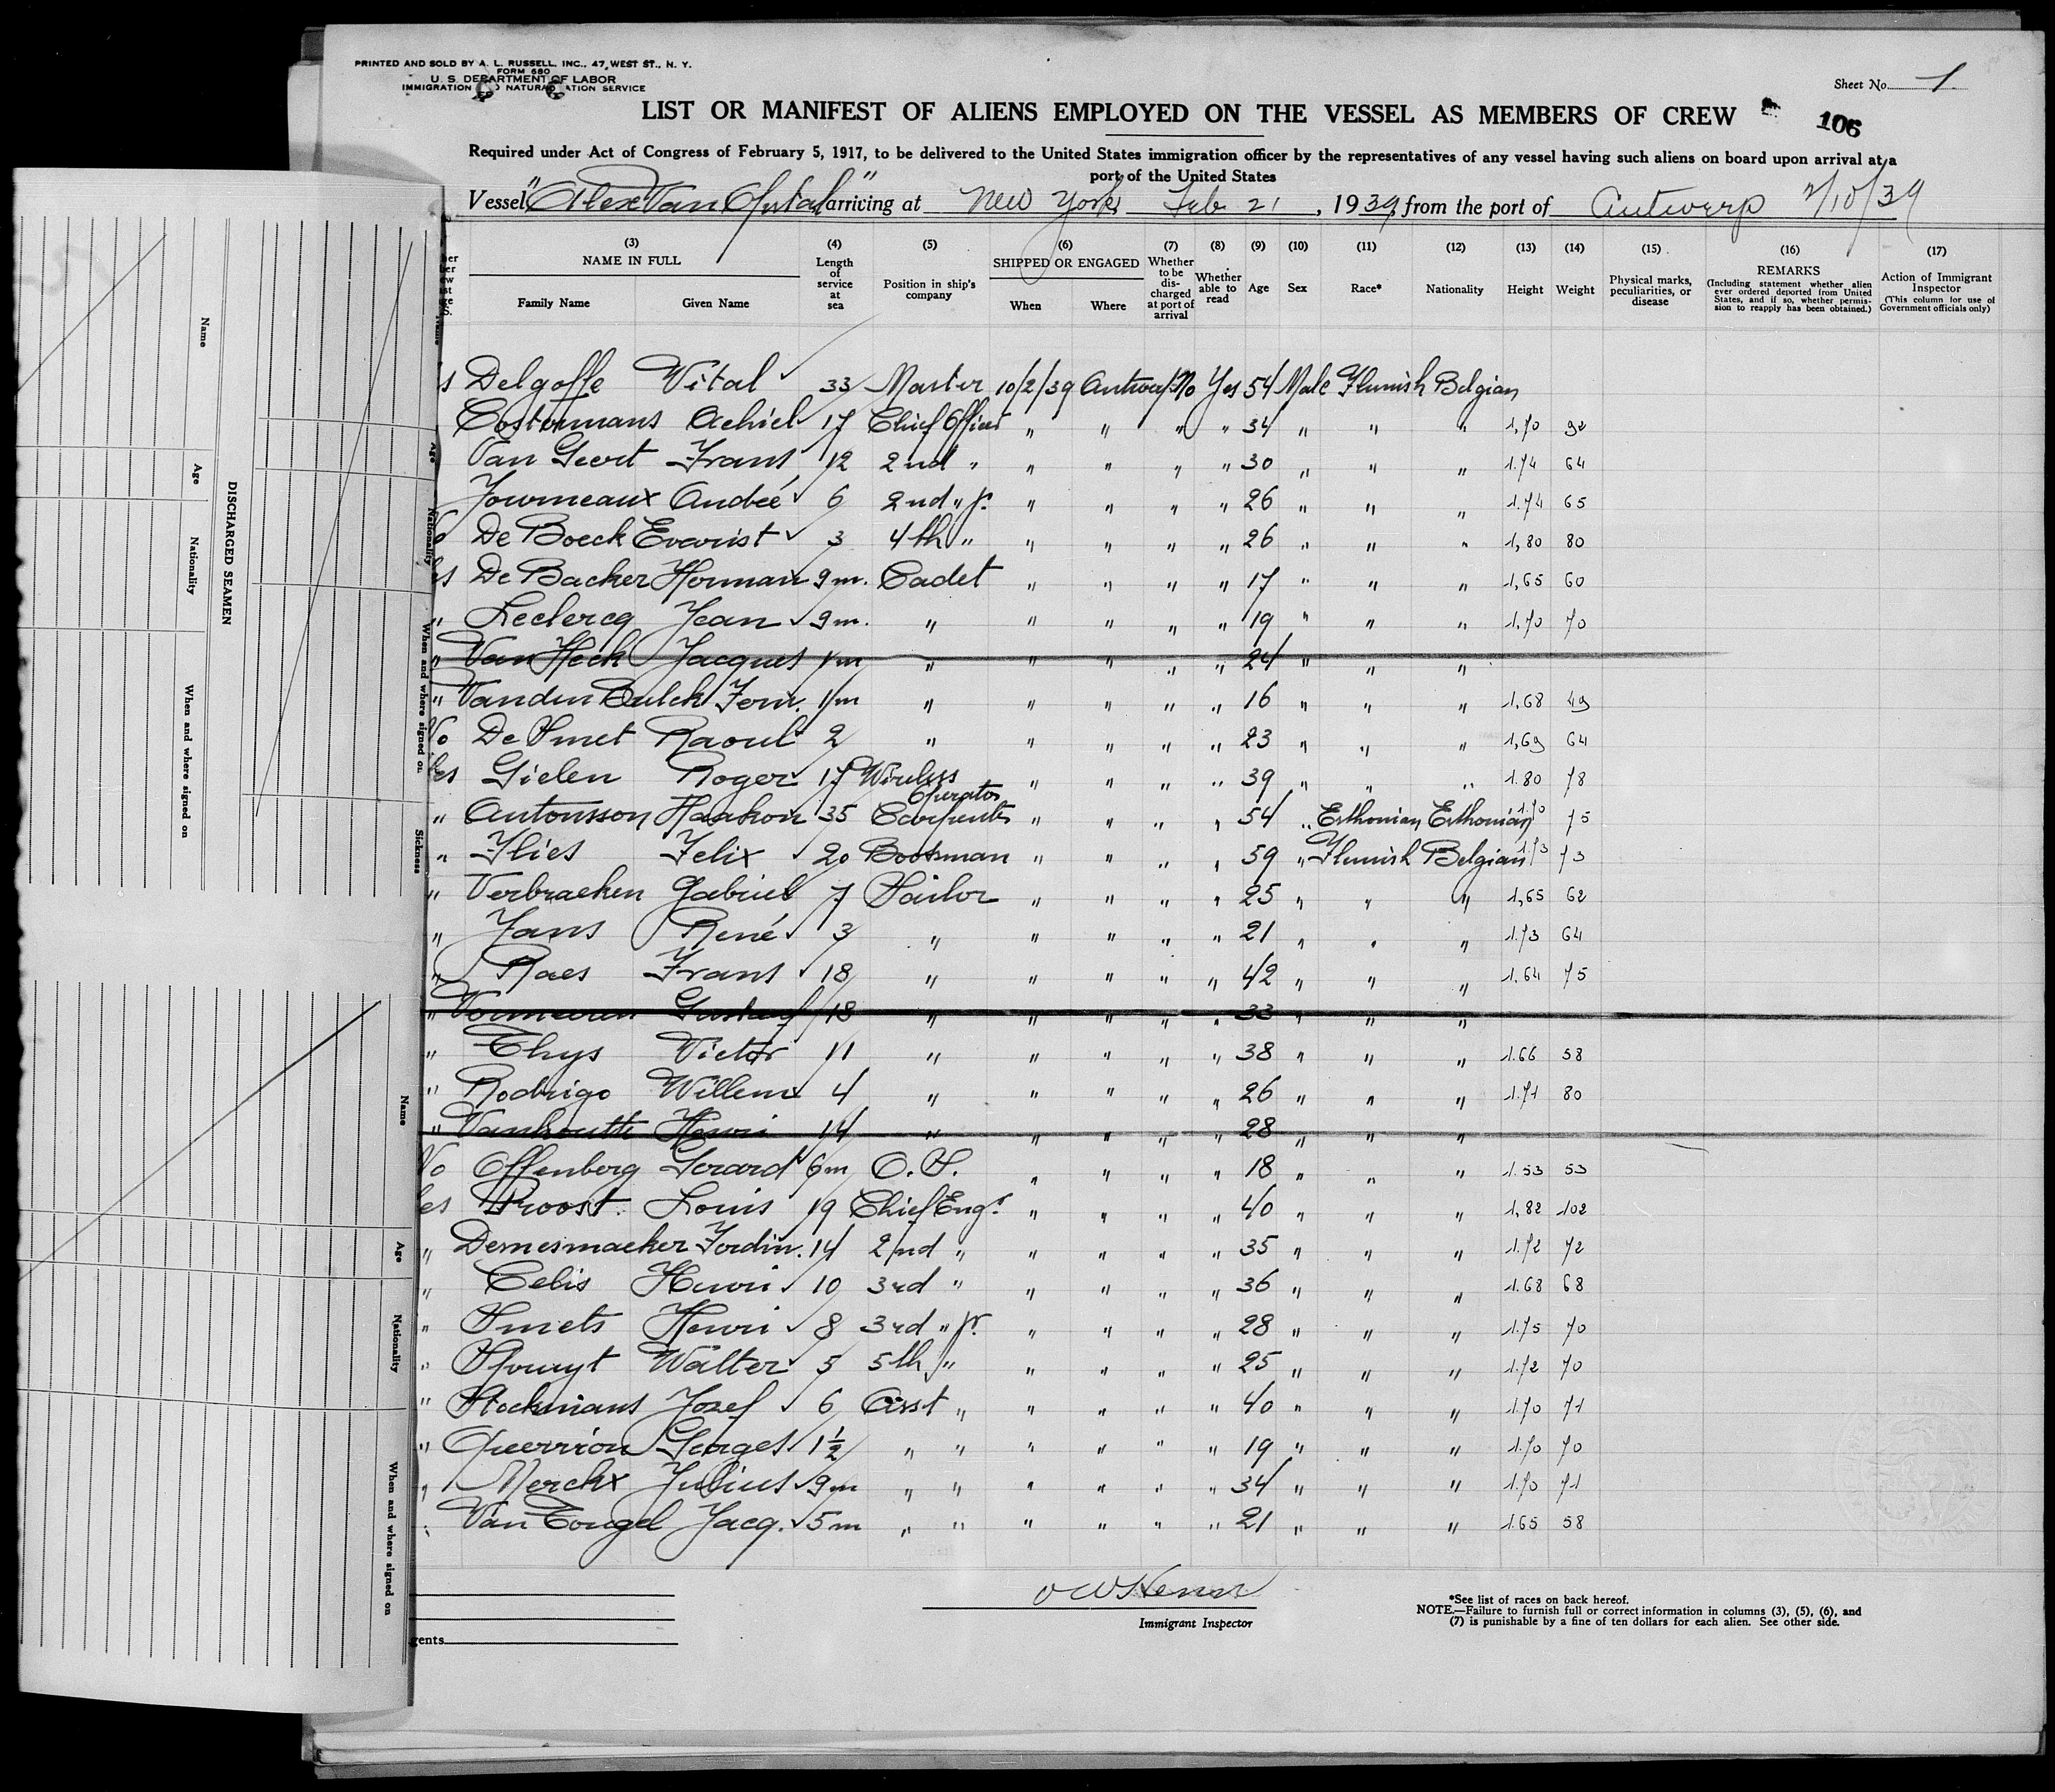 PRINTED AND SOLD BY A. L. RUSSELL, INC., 47 WEST ST., N. Y.
FORM 680
U. S. DEPARTMENT OF LABOR
IMMIGRATION NATURA ATION SERVICE
Sheet No. 1.
LIST OR MANIFEST OF ALIENS EMPLOYED ON THE VESSEL AS MEMBERS OF CREW
106
Required under Act of Congress of February 5, 1917, to be delivered to the United States immigration officer by the representatives of any vessel having such aliens on board upon arrival at a
port of the United States
Vessel "Alex Van Opstal" arriving at New York Feb 21, 1939, from the port of Antwerp 2/10/39
(3) NAME IN FULL Family Name Given Name
(4) Length of service at sea
(5) Position in ship's company
(6) SHIPPED OR ENGAGED When Where
(7) Whether to be discharged at port of arrival
(8) Whether able to read
(9) Age
(10) Sex
(11) Race*
(12) Nationality
(13) Height
(14) Weight
(15) Physical marks, peculiarities, or disease
(16) REMARKS (Including statement whether alien ever ordered deported from United States, and if so, whether permission to reapply has been obtained.)
(17) Action of Immigrant Inspector (This column for use of Government officials only)
s Delgoffe Vital 33 Master 10/2/39 Antwerp No Yes 54 Male Flemish Belgian
Costermans Achiel 17 Chief Officer " " " " 34 " " " 1,70 92
Van Geert Frans 12 2nd " " " " " 30 " " " 1.74 64
Journeaux André 6 2nd " jr. " " " " 26 " " " 1.74 65
De Boeck Evarist 3 4th " " " " " 26 " " " 1,80 80
De Backer Herman 9m. Cadet " " " " 17 " " " 1,65 60
" Leclercq Jean 9m. " " " " " 19 " " " 1,70 70
" Van Heck Jacques 1m " " " " " 24 " " "
" Vanden Bulck Fern. 1m " " " " " 16 " " " 1,68 49
No De Smet Raoul 2 " " " " " 23 " " " 1,69 64
es Gielen Roger 17 Wireless Operator " " " " 39 " " " 1.80 78
" Antonsson Haakon 35 Carpenter " " " " 54 " Esthonian Esthonian 1.70 75
" Flies Felix 20 Bootsman " " " " 59 " Flemish Belgian 1.73 73
" Verbraeken Gabriel 7 Sailor " " " " 25 " " " 1,65 62
" Jans René 3 " " " " " 21 " " " 1.73 64
" Raes Frans 18 " " " " " 42 " " " 1.64 75
" Gustaaf 18 " " " " " 33 " " "
" Thys Victor 11 " " " " " 38 " " " 1.66 58
" Rodrigo Willem 4 " " " " " 26 " " " 1.71 80
" Vanhoutte Henri 14 " " " " " 28 " " "
No Offenberg Gerard 6m O.S. " " " " 18 " " " 1.53 53
es Proost Louis 19 Chief Engr. " " " " 40 " " " 1,82 102
" Demesmaeker Ferdin. 14 2nd " " " " " 35 " " " 1.72 72
" Celis Henri 10 3rd " " " " " 36 " " " 1.68 68
" Smets Henri 8 3rd " jr. " " " " 28 " " " 1.75 70
" Walter 5th " " " " " 25 " " " 1.72 70
" Stockmans Jozef 6 Asst " " " " " 40 " " " 1.70 71
" Georges 1½ " " " " " " 19 " " " 1.70 70
" Merckx Julius 9m " " " " " " 34 " " " 1.70 71
Van Tongel Jacq. 5m " " " " " " 21 " " " 1.65 58
Immigrant Inspector
gents
*See list of races on back hereof.
NOTE.—Failure to furnish full or correct information in columns (3), (5), (6), and
(7) is punishable by a fine of ten dollars for each alien. See other side.
DISCHARGED SEAMEN
Name
Age
Nationality
When and where signed on
Name
Age
Nationality
When and where signed on
Sickness
Name
Age
Nationality
When and where signed on